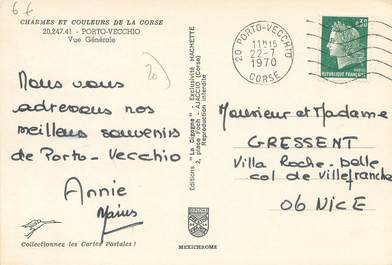 6 f
CHARMES ET COULEURS DE LA CORSE
20.247.41 - PORTO-VECCHIO
Vue Générale
20
Nous vous
adressons nos
meilleurs souvenirs
de Porto-Vecchio
Annie
Marius
Collectionnez les Cartes Postales !
Editions "La Cigogne" - Exclusivité HACHETTE
2, place Foch - AJACCIO (Corse)
Reproduction interdite
MEXICHROME
20 PORTO-VECCHIO
11H15
22-7
1970
CORSE
0,30
REPUBLIQUE FRANÇAISE
Monsieur et Madame
GRESSENT
Villa Roche-belle
col de Villefranche
06 NICE